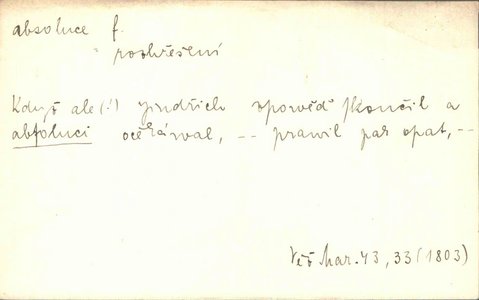 absoluce f.
rozhřešení
Když ale (!) Jindřich zpověď skončil a
abſoluci očekával, -- prawil pak opat, --
Več Mar. 43, 33 (1803)